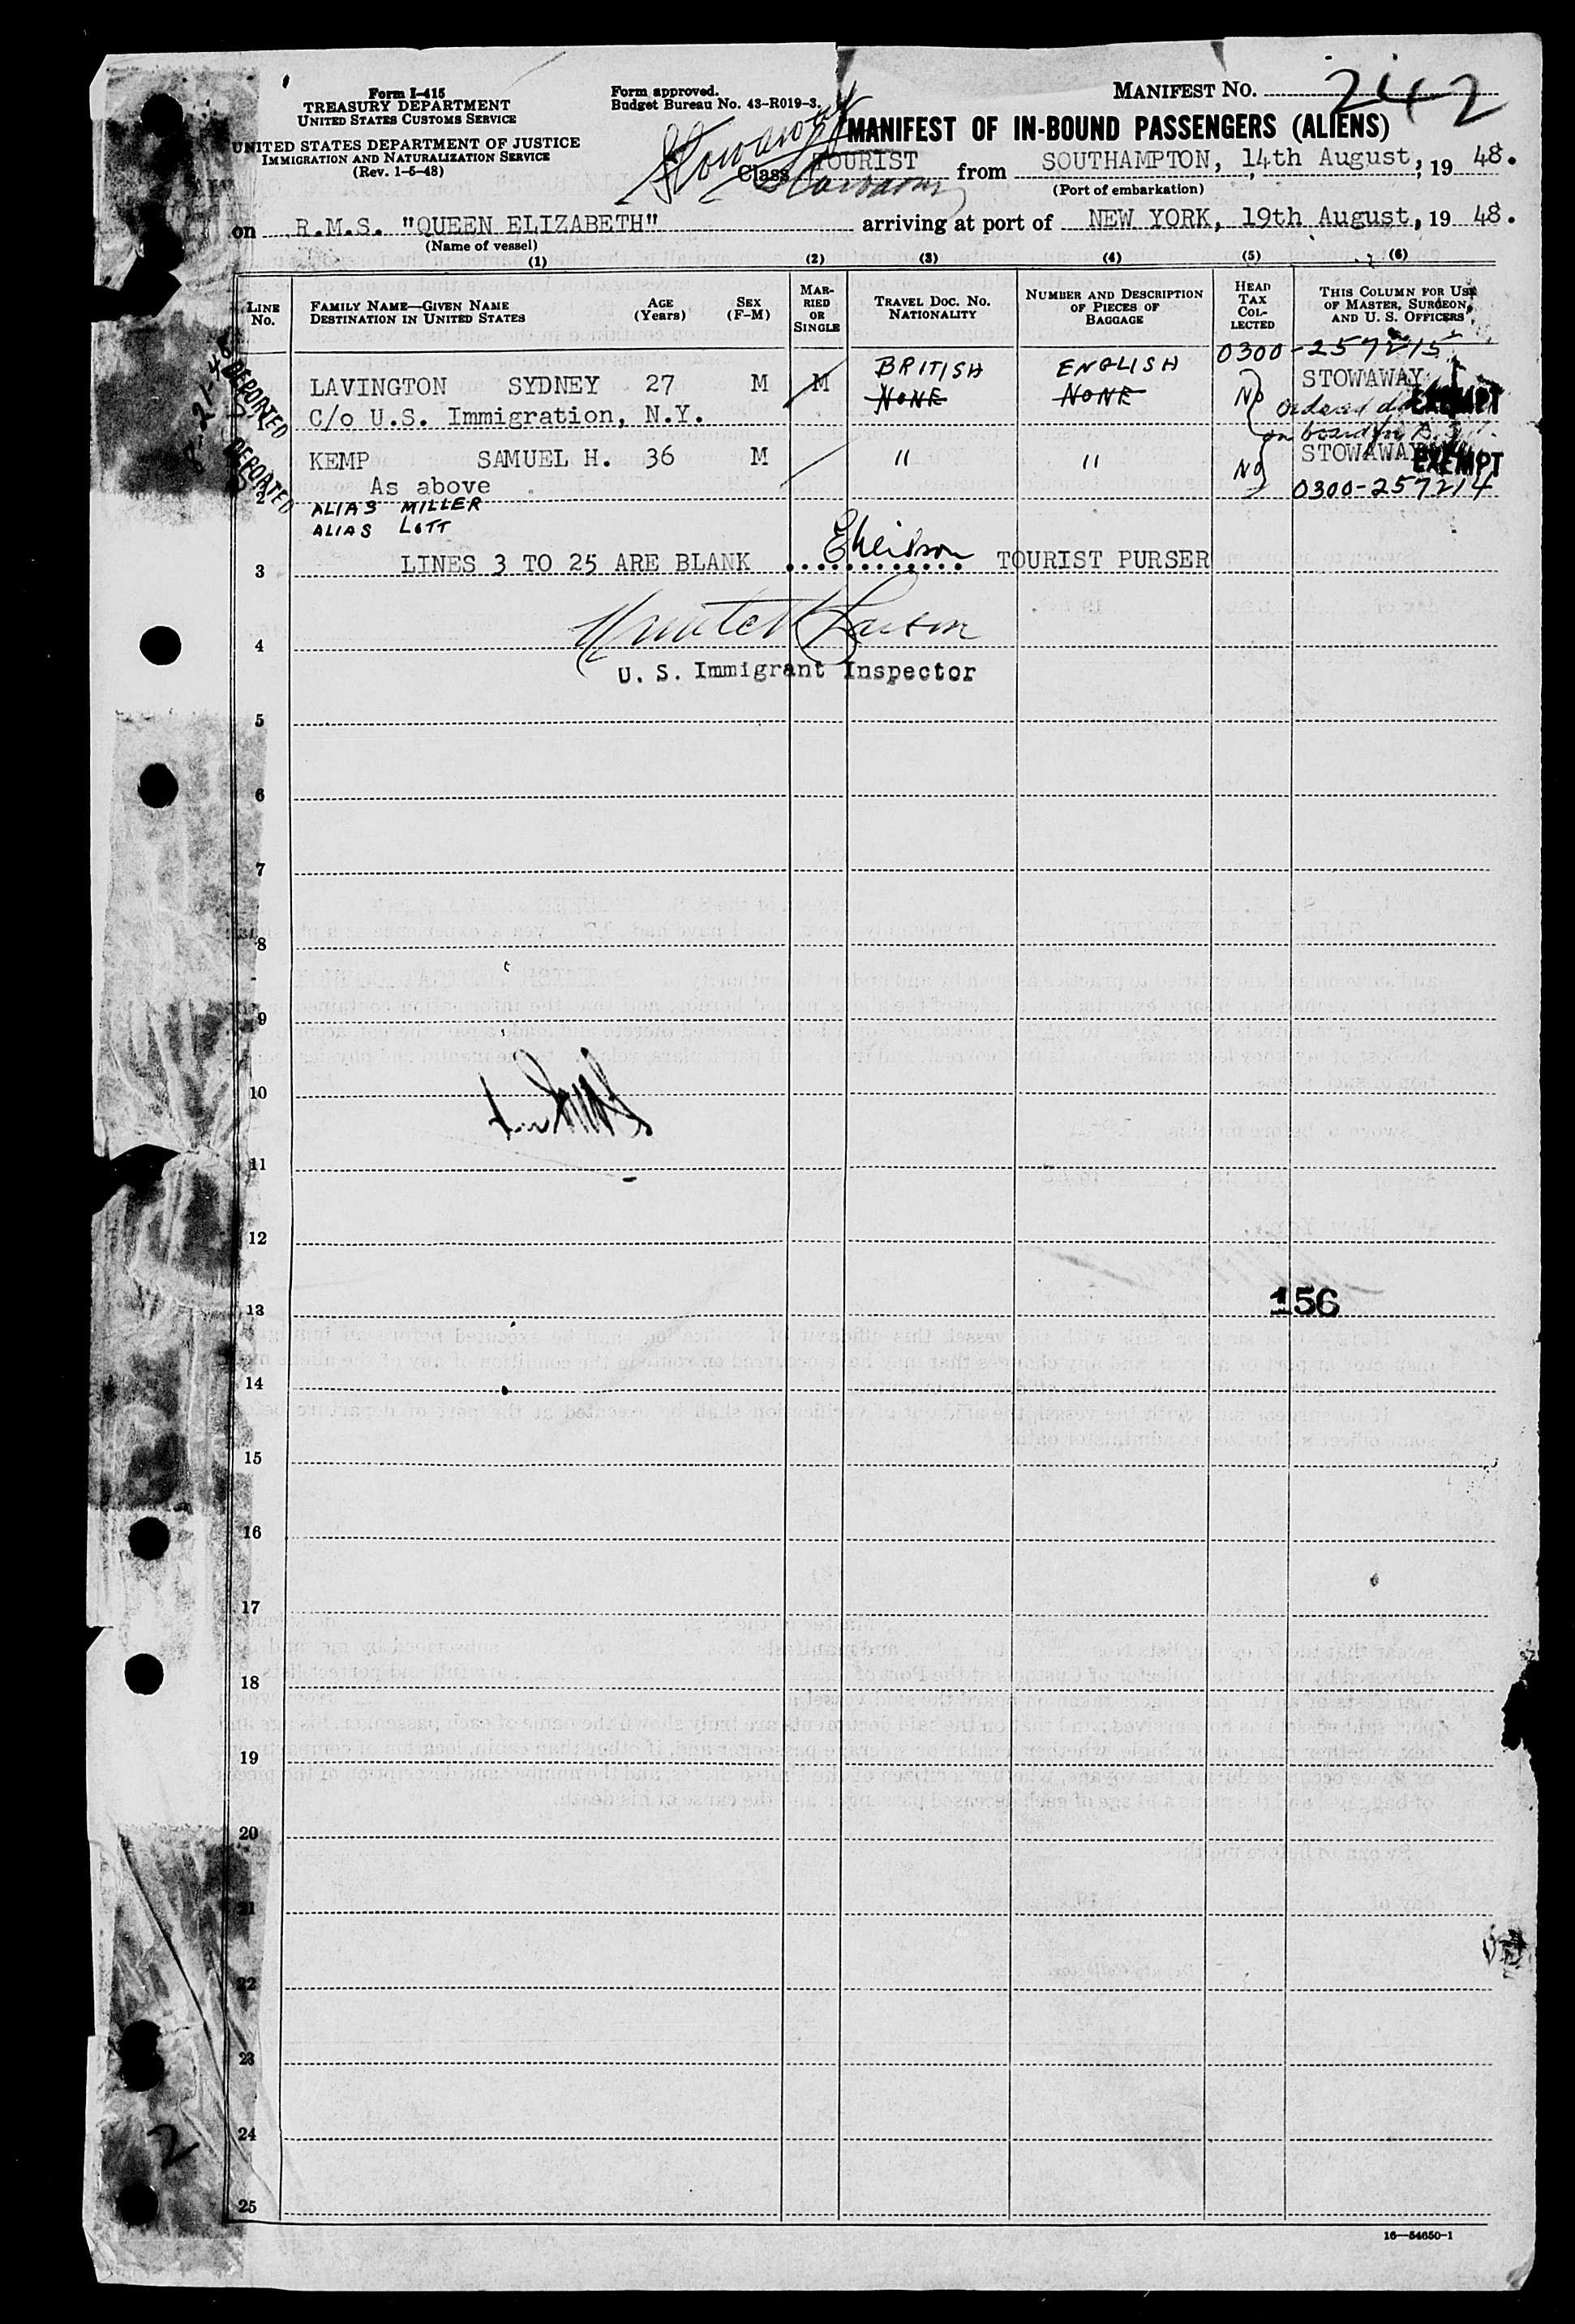 Form I-415
TREASURY DEPARTMENT
UNITED STATES CUSTOMS SERVICE
UNITED STATES DEPARTMENT OF JUSTICE
IMMIGRATION AND NATURALIZATION SERVICE
(Rev. 1-5-48)
Form approved.
Budget Bureau No. 43-R019-3.
MANIFEST NO. 242
Stowaway
MANIFEST OF IN-BOUND PASSENGERS (ALIENS)
Class TOURIST from SOUTHAMPTON, 14th August, 19 48.
Stowaway
(Port of embarkation)
on R.M.S. "QUEEN ELIZABETH" arriving at port of NEW YORK, 19th August, 19 48.
(Name of vessel)
(1) (2) (3) (4) (5) (6)
LINE No.
FAMILY NAME—GIVEN NAME
DESTINATION IN UNITED STATES
AGE (Years)
SEX (F-M)
MARRIED OR SINGLE
TRAVEL DOC. NO. NATIONALITY
NUMBER AND DESCRIPTION OF PIECES OF BAGGAGE
HEAD TAX COLLECTED
THIS COLUMN FOR USE OF MASTER, SURGEON, AND U. S. OFFICERS
0300-257215
DEPORTED
LAVINGTON SYDNEY 27 M M BRITISH NONE ENGLISH NONE No STOWAWAY EXEMPT
C/o U.S. Immigration, N.Y.
Ordered
on board
DEPORTED
KEMP SAMUEL H. 36 M " " No STOWAWAY EXEMPT
2 As above 0300-257214
ALIAS MILLER
ALIAS LOTT
3 LINES 3 TO 25 ARE BLANK TOURIST PURSER
4
U. S. Immigrant Inspector
5
6
7
8
9
10
11
12
13 156
14
15
16
17
18
19
20
21
22
23
24
2
25
16—54650-1